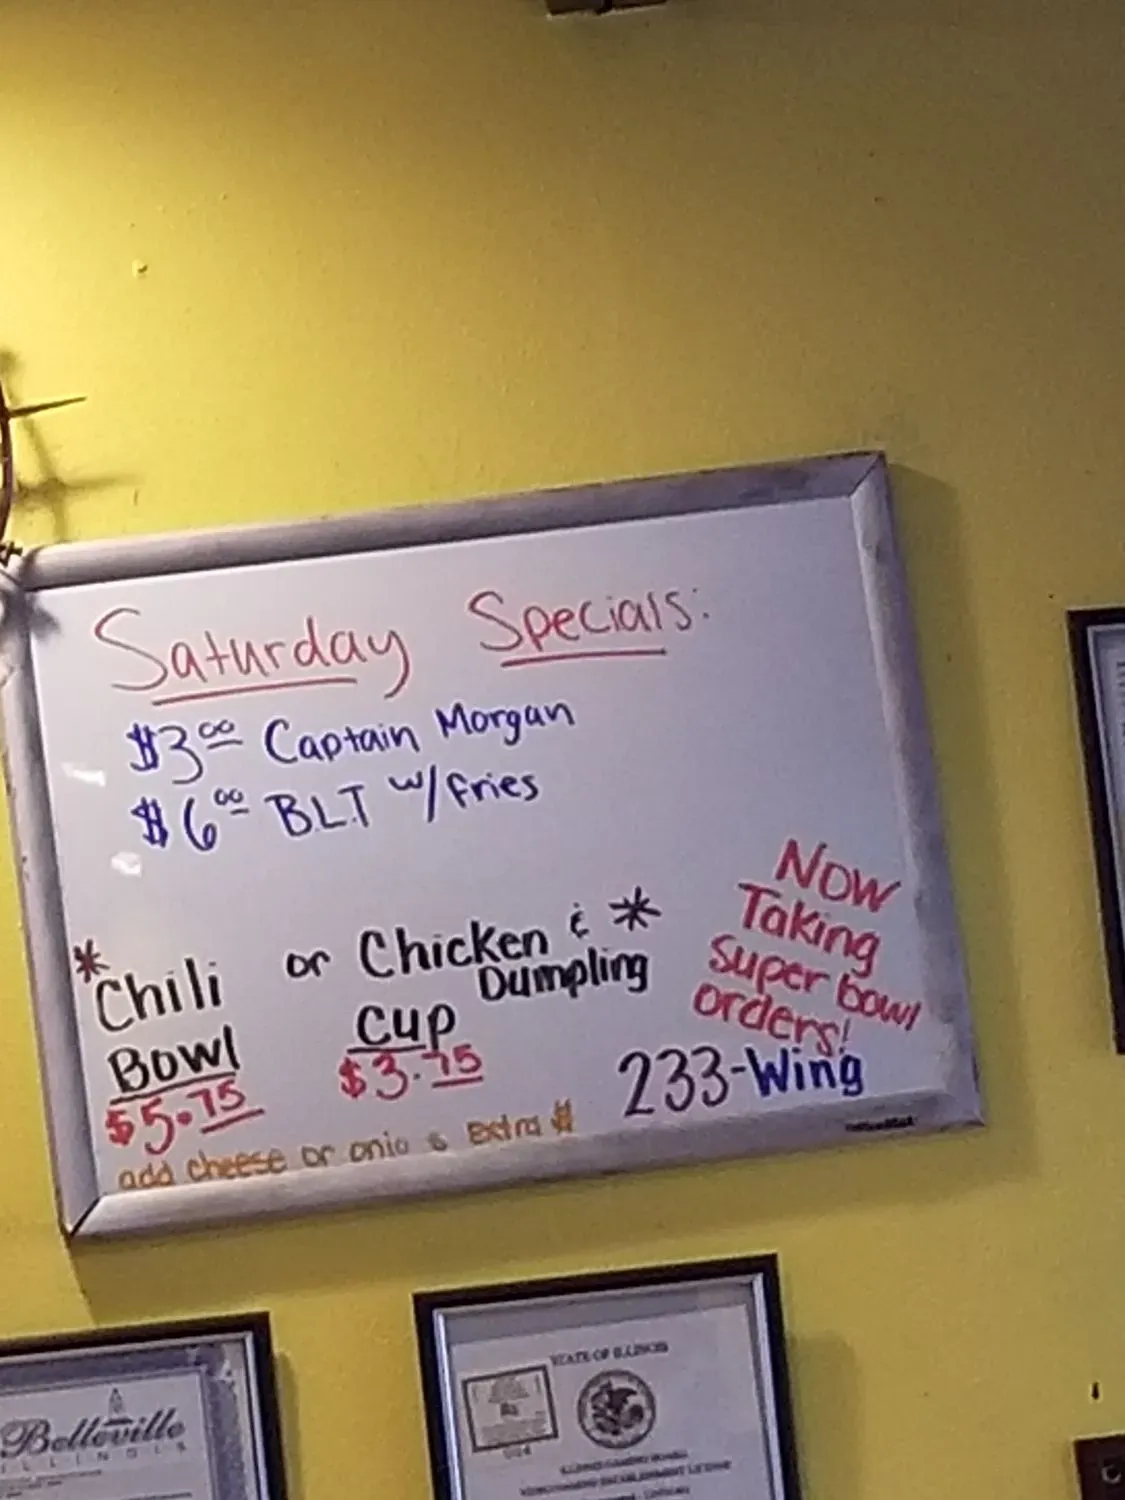 Saturday Specials:
$3.00 Captain Morgan
$6.00 B.L.T w/fries
*Chili or Chicken & Dumpling *
Bowl Cup
$5.75 $3.75
add cheese or onio s extra $
Now
Taking
Super bowl
orders!
233-Wing
OfficeMax
Belleville
ILLINOIS
STATE OF ILLINOIS
ILLINOIS GAMING BOARD
VIDEO GAMING ESTABLISHMENT LICENSE